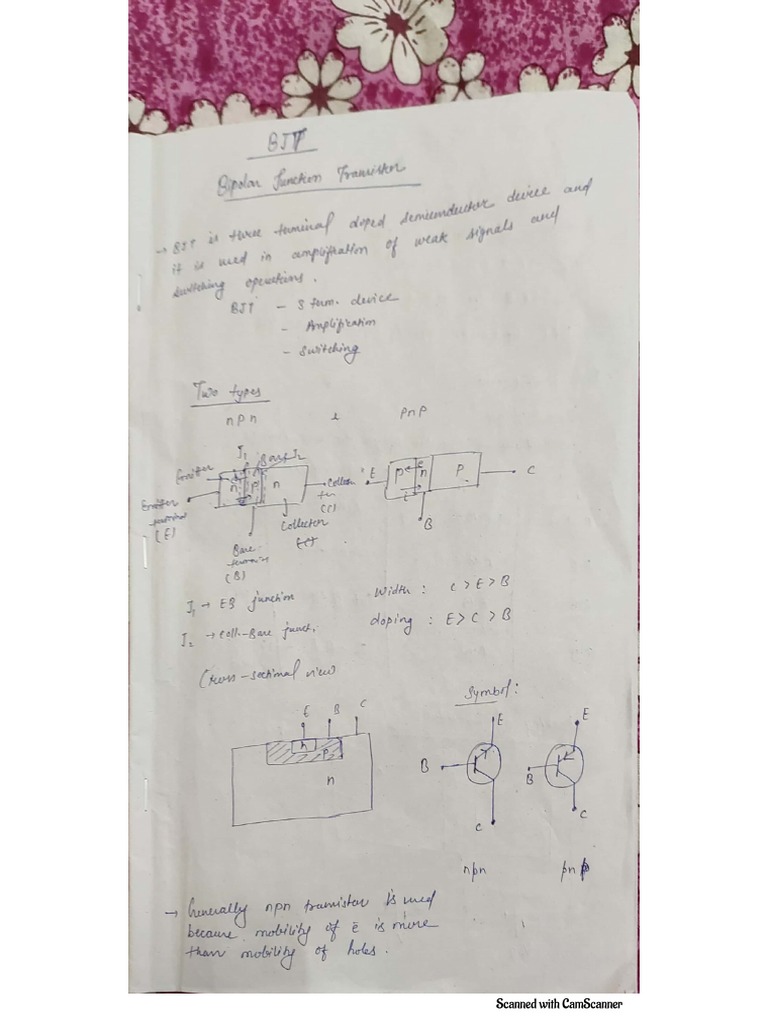 BJT
Bipolar Junction Transistor
→ BJT is three terminal doped semiconductor device and
it is used in amplification of weak signals and
switching operations.
BJT - 3 term. device
- Amplification
- Switching
Two types
npn & pnp
J₁ Base J₂
Emitter n p n Collector (C)
Emitter terminal (E)
Base terminal (B)
Collector
E p n p C
B
J₁ → EB junction Width : C > E > B
J₂ → Coll-Base junct. doping : E > C > B
Cross-sectional view
Symbol:
E B C
n
p
n
E
B
C
E
B
C
npn pnp
→ Generally npn transistor is used
because mobility of e̅ is more
than mobility of holes.
Scanned with CamScanner